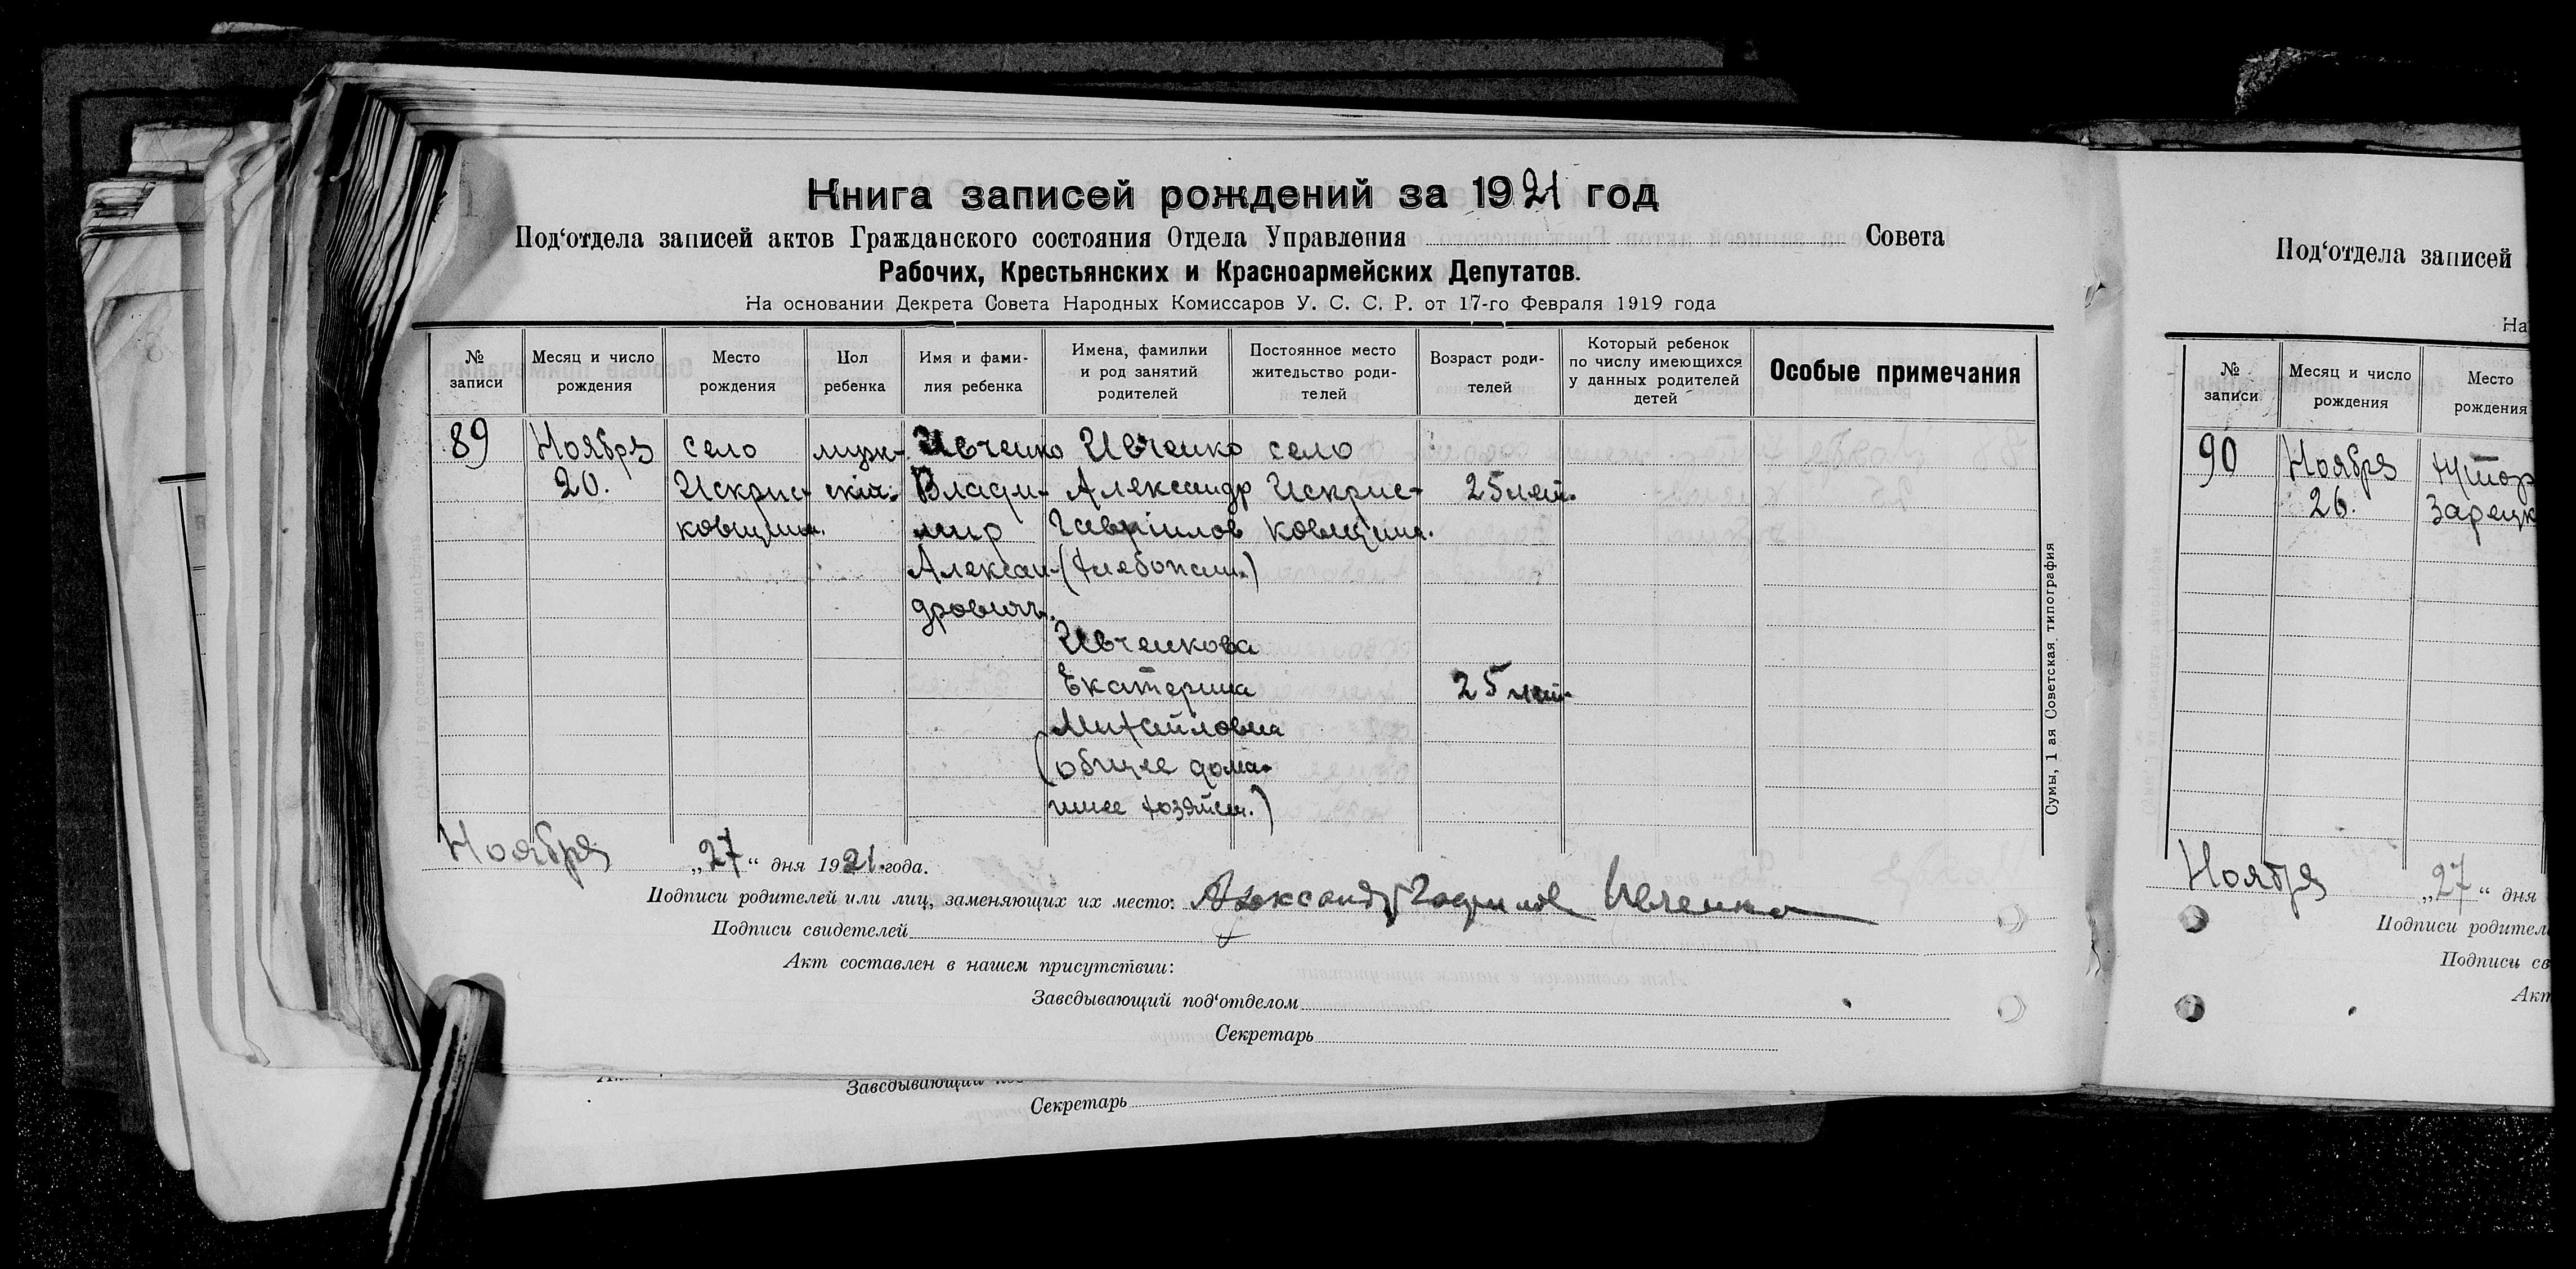 Книга записей рождений за 1921 год
Под‘отдела записей актов Гражданского состояния Отдела Управления Совета
Рабочих, Крестьянских и Красноармейских Депутатов.
На основании Декрета Совета Народных Комиссаров У. С. С. Р. от 17-го Февраля 1919 года
№ записи
Месяц и число рождения
Место рождения
Пол ребенка
Имя и фами-
лия ребенка
Имена, фамилии
и род занятий
родителей
Постоянное место
жительство роди-
телей
Возраст роди-
телей
Который ребенок
по числу имеющихся
у данных родителей
детей
Особые примечания
89
Ноября
20.
село
Искрис-
ковщина.
муж-
ской.
Ивченко
Влади-
мир
Алексан-
дрович.
Ивченко
Александр
Гаврiилов
(хлебопаш.)
Ивченкова
Екатерина
Михайловна
(общее дома-
шнее хозяйст.)
село
Искрис-
ковщина.
25 лет.
25 лет.
Ноября „27“ дня 1921 года.
Подписи родителей или лиц, заменяющих их место: Александр Гаврилов Ивченко
Подписи свидетелей
Акт составлен в нашем присутствии:
Заведывающий под‘отделом
Секретарь
Сумы, 1 ая Советская типография
Заведывающий
Секретарь
Под‘отдела записей
На
№ записи
Месяц и число рождения
Место рождения
90
Ноября
26.
хутор
Зарецк
Ноября „27“ дня
Подписи родител
Подписи св
Акт